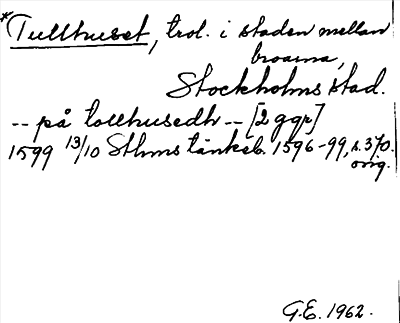 *Tullhuset, trol. i staden mellan
broarna,
Stockholms stad.
-- på tollhusedh -- [2 ggr]
1599 13/10 Sthms tänkeb. 1596-99, s. 370.
orig.
G.E. 1962.